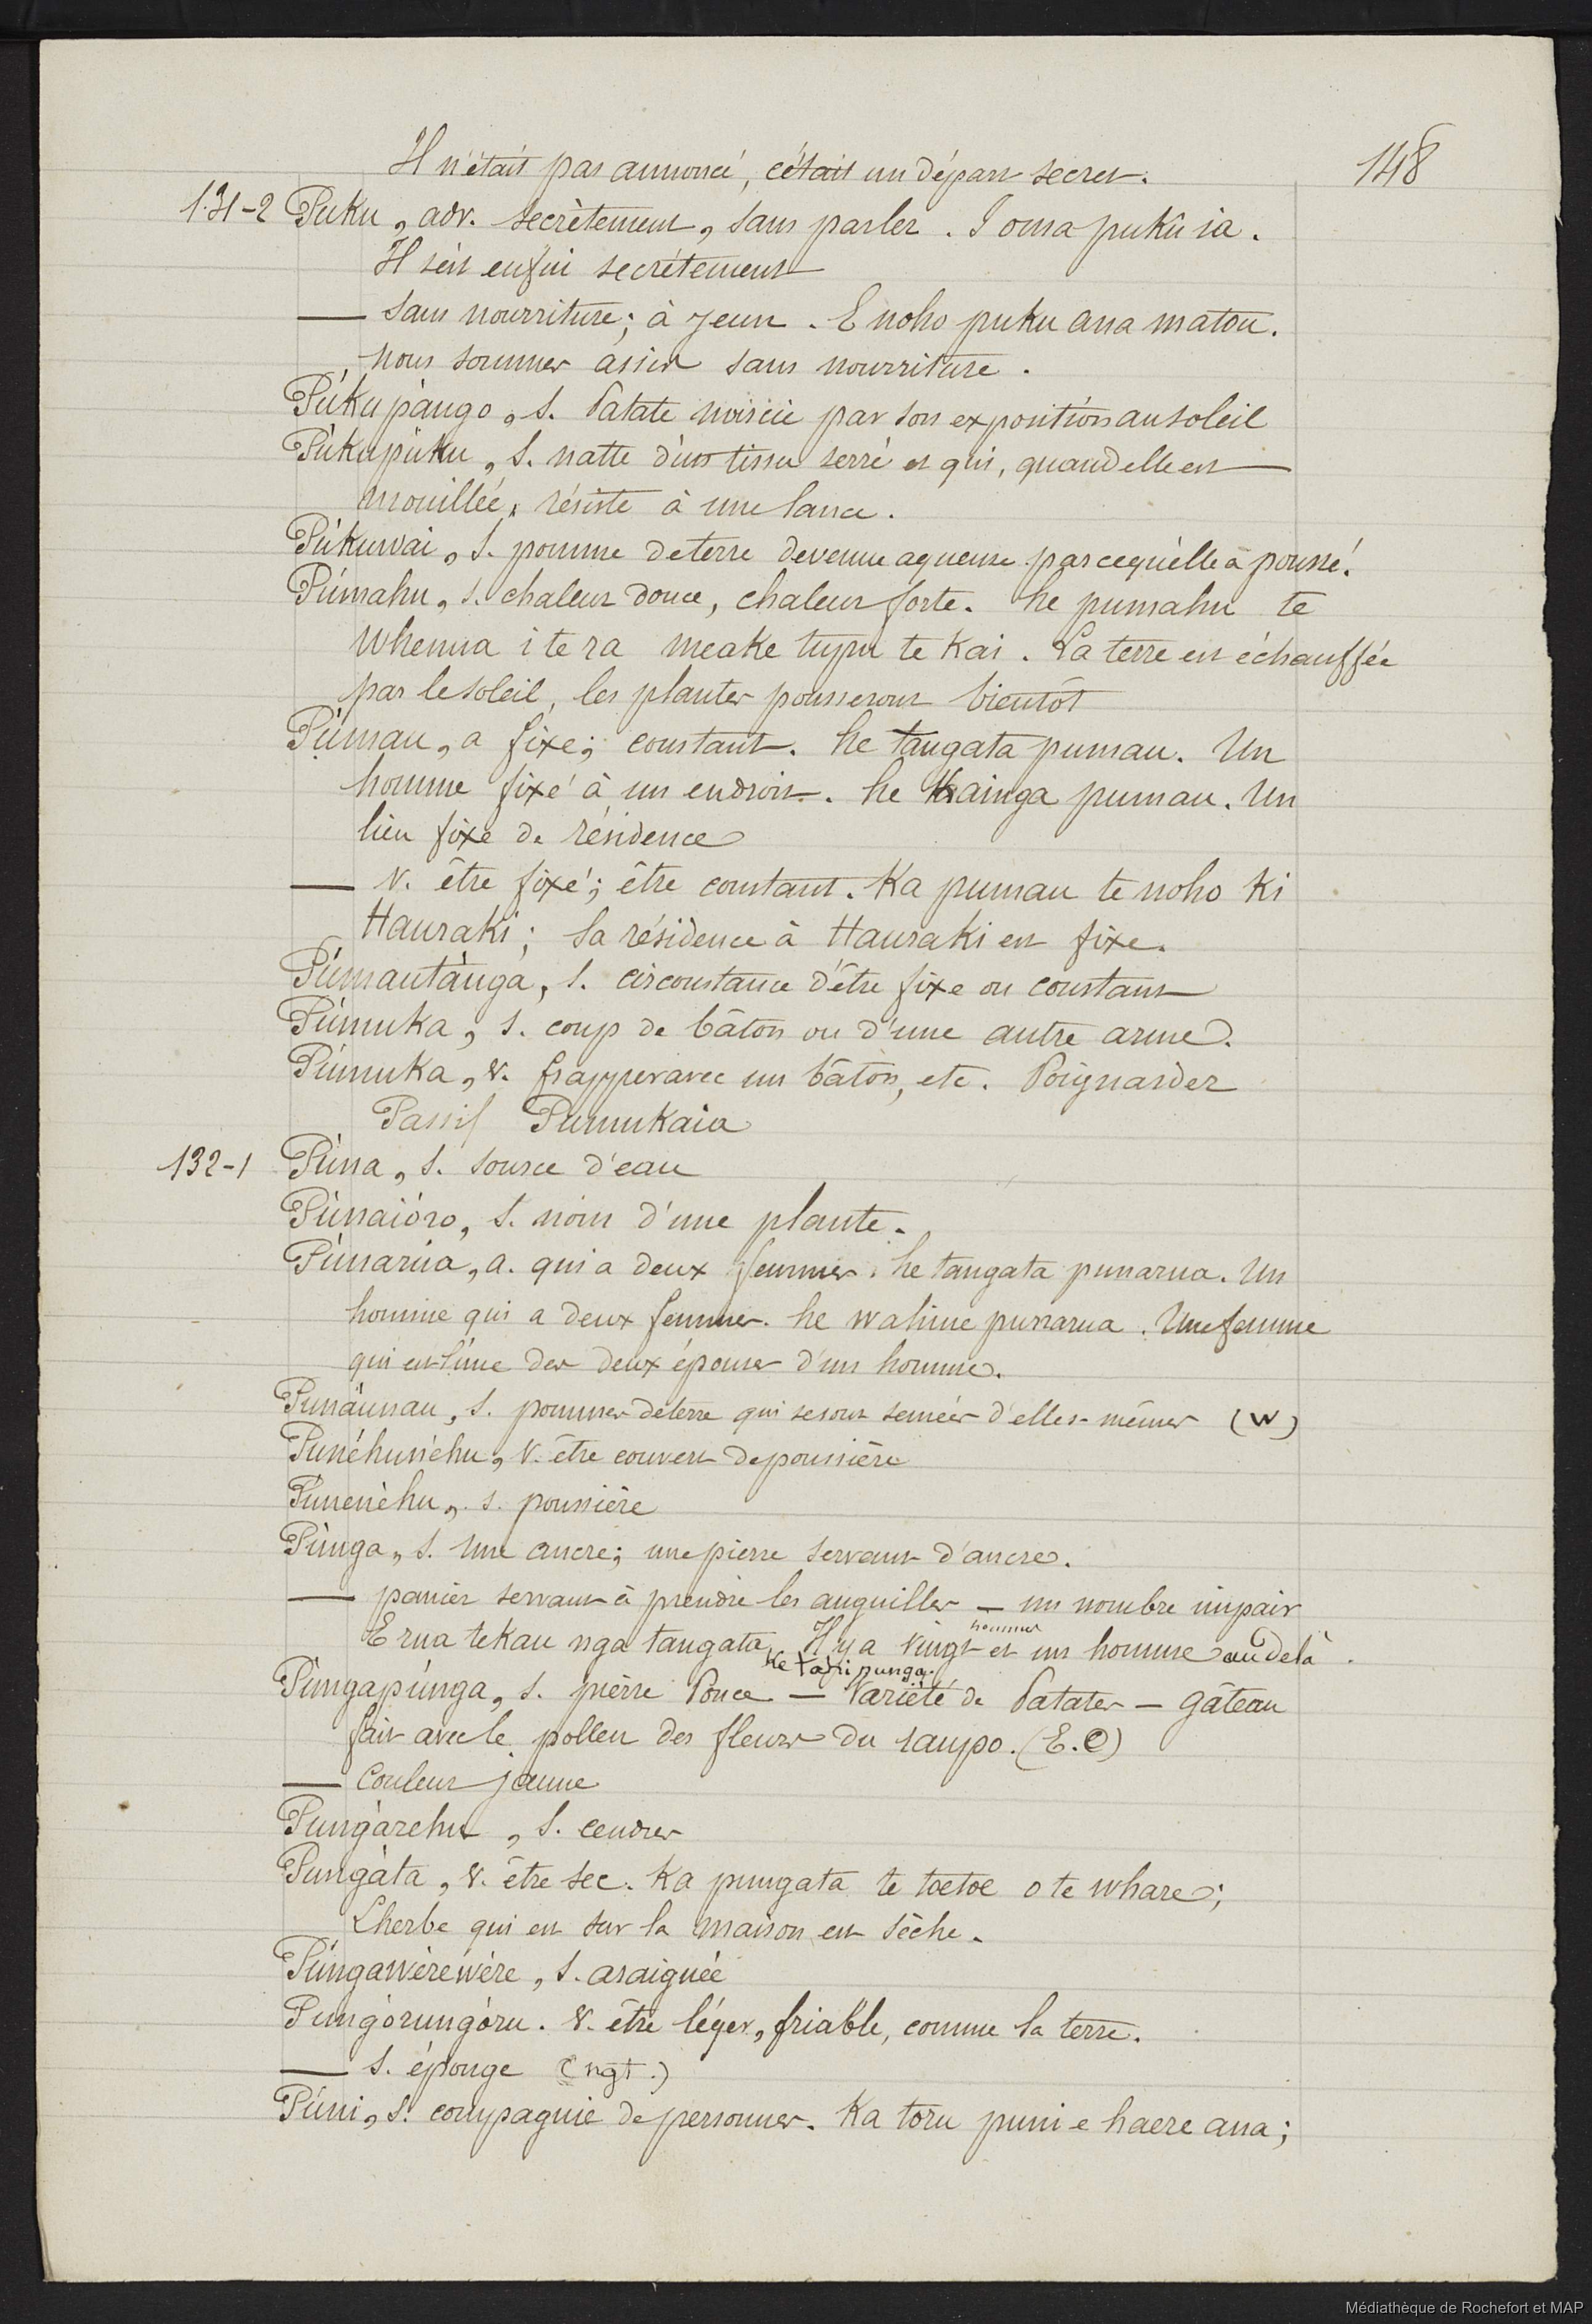 148
Il n'était pas annoncé, c'était un départ secret.
131-2 Puku, adv. secrètement, sans parler. I oma puku ia.
Il s'est enfui secrétement
— sans nourriture; à jeun. E noho puku ana matou.
nous sommes assis sans nourriture.
Púkupàngo, s. Patate noircie par son exposition au soleil
Pùkupùku, s. natte d'un tissu serré et qui, quand elle est
mouillée, résiste à une lance.
Púkuwai, s. pomme de terre devenue aqueuse parcequ'elle a poussé.
Púmahu, s. chaleur douce, chaleur forte. he pumahu te
whenua i te ra meake tupu te kai. La terre est échauffée
par le soleil, les plantes pousseront bientôt
Púmau, a fixe; constant. he tangata pumau. Un
homme fixé à un endroit. he kainga pumau. Un
lieu fixe de résidence
— v. être fixé; être constant. Ka pumau te noho ki
Hauraki; la résidence à Hauraki est fixe.
Púmautànga, s. circonstance d'être fixe ou constant
Púmuka, s. coup de bâton ou d'une autre arme.
Púmuka, v. frapper avec un bâton, etc. Poignarder
Passif Pumukaia
132-1 Pùna, s. source d'eau
Pùnaióro, s. nom d'une plante.
Pùnarúa, a. qui a deux femmes. he tangata punarua. Un
homme qui a deux femmes. he wahine punarua. Une femme
qui est l'une des deux épouses d'un homme.
Punàunau, s. pommes de terre qui se sont semées d'elles-mêmes (W)
Punéhunéhu, v. être couvert de poussière
Púnenèhu, s. poussière
Pùnga, s. Une ancre; une pierre servant d'ancre.
— panier servant à prendre les anguilles — un nombre impair
E rua tekau nga tangata ke tahi punga. Il y a vingt hommes et un homme au delà.
Pùngapúnga, s. pierre Ponce — Variété de Patates — gâteau
fait avec le pollen des fleurs du raupo. (E.C)
— Couleur jaune
Pungàrehu, s. cendres
Pungàta, v. être sec. Ka pungata te toetoe o te whare;
L'herbe qui est sur la maison est sèche.
Púngawèrewère, s. araignée
Pungòrungòru. v. être léger, friable, comme la terre.
— s. éponge (ngt.)
Púni, s. compagnie de personnes. Ka toru puni e haere ana;
Médiathèque de Rochefort et MAP